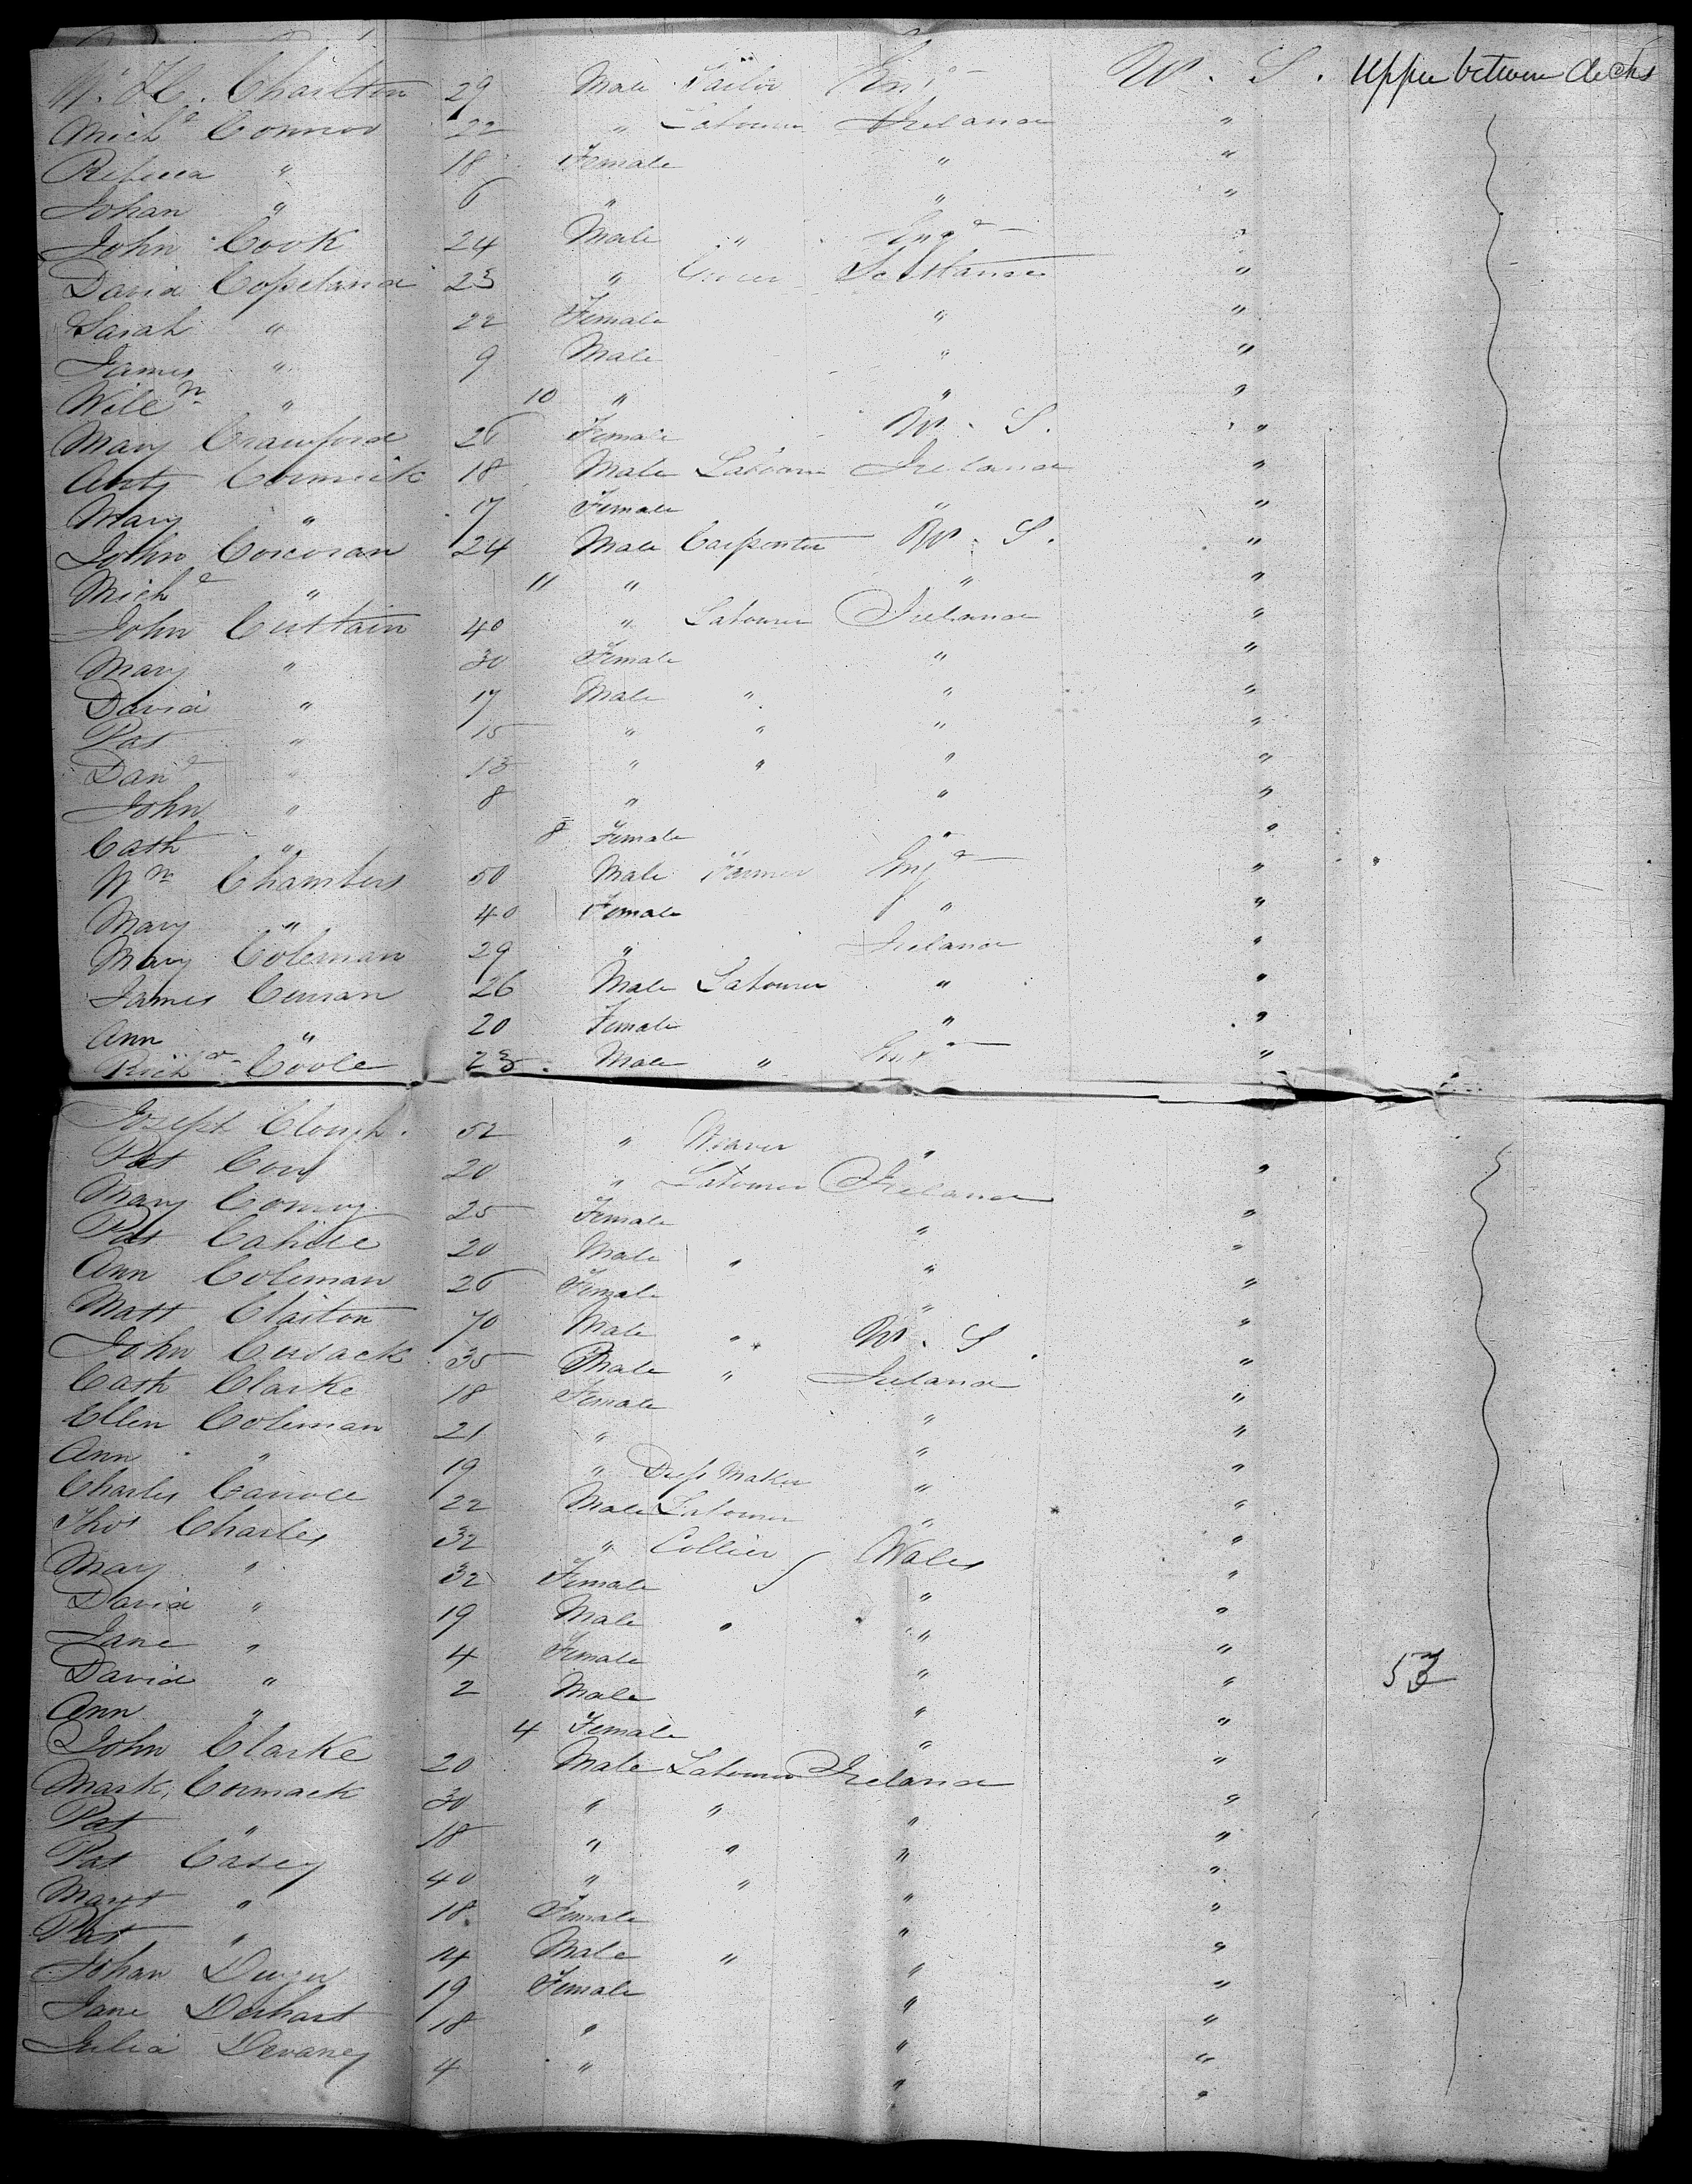 W. H. Charlton 29 Male Tailor Eng^d U. S. Upper between decks
Mich^l Connor 22 " Labourer Ireland "
Rebecca " 18 Female " "
Johan " 6 " " "
John Cook 24 Male " Eng^d "
David Copeland 23 " Scotland "
Sarah " 22 Female " "
James " 9 Male " "
Will^m " 10 " " "
Mary Crawford 26 Female U. S. "
Anty Cormick 18 Male Labourer Ireland "
Mary " 17 Female " "
John Corcoran 24 Male Carpenter U. S. "
Mich^l " 11 " " "
John Curtain 40 " Labourer Ireland "
Mary " 30 Female " "
David " 17 Male " " "
Pat " 15 " " " "
Dan^l " 13 " " " "
John " 8 " " "
Cath " 8 Female " "
W^m Chambers 50 Male Farmer Eng^d "
Mary " 40 Female " "
Mary Coleman 29 " Ireland "
James Curran 26 Male Labourer " "
Ann " 20 Female " "
Rich^d Coole 23 Male " Eng^d "
Joseph Clough 52 " Weaver "
Pat 20 " Labourer Ireland "
Mary Conway 25 Female " "
Pat Cahill 20 Male " " "
Ann Coleman 26 Female " "
Matt Claiton 70 Male " U. S. "
John Cusack 35 Male " Ireland "
Cath Clarke 18 Female " "
Ellen Coleman 21 " " "
Ann " 19 " Dress Maker " "
Charles Carroll 22 Male Labourer " "
Thos Charles 32 " Collier Wales "
Mary " 32 Female " "
David " 19 Male " " "
Jane " 4 Female " "
David " 2 Male " " 53
Ann " 4 Female " "
John Clarke 20 Male Labourer Ireland "
Mark Cormack 30 " " " "
Pat " 18 " " " "
Pat Casey 40 " " " "
Margt " 18 Female " "
Pat " 14 Male " " "
Johan Dwyer 19 Female " "
Jane Derhart 18 " " "
Julia Devaney 4 " " "